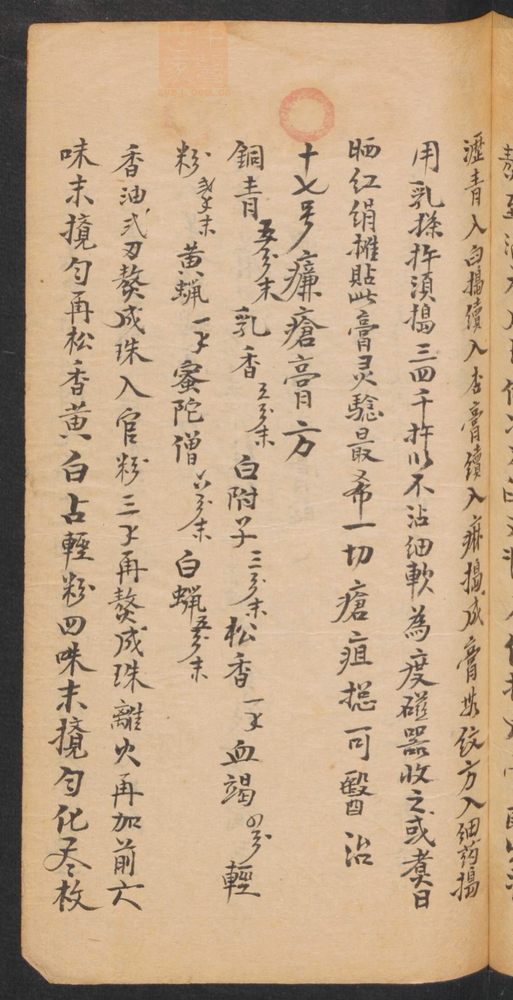 瀝青入臼搗續入杏膏續入麻搗成膏無纹方入细药搗
用乳搽杵須搗三四千杵以不沾细軟為度磁器收之或煮日
晒红绢摊貼此膏灵驗最希一切瘡疽揔可醫治
十七号臁瘡膏方
銅青五分末乳香三分末白附子三分末松香一才血竭四分輕
粉末黄蝋一才蜜陀僧六分末白蝋五分末
香油弍刃熬成珠入官粉三才再熬成珠離火再加前六
味末攪匀再松香黄白占輕粉四味末攪匀化尽枚